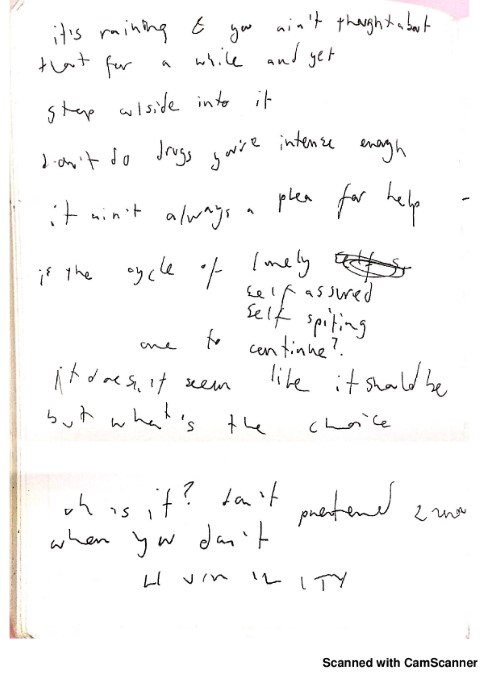 it's raining & you ain't thought about
that for a while and yet
step outside into it
don't do drugs you're intense enough
it ain't always a plea for help -
is the cycle of lonely
self assured
self spiting
one to continue?
it doesn't seem like it should be
but what's the choice
oh is it? don't pretend 2 know
when you don't
Scanned with CamScanner